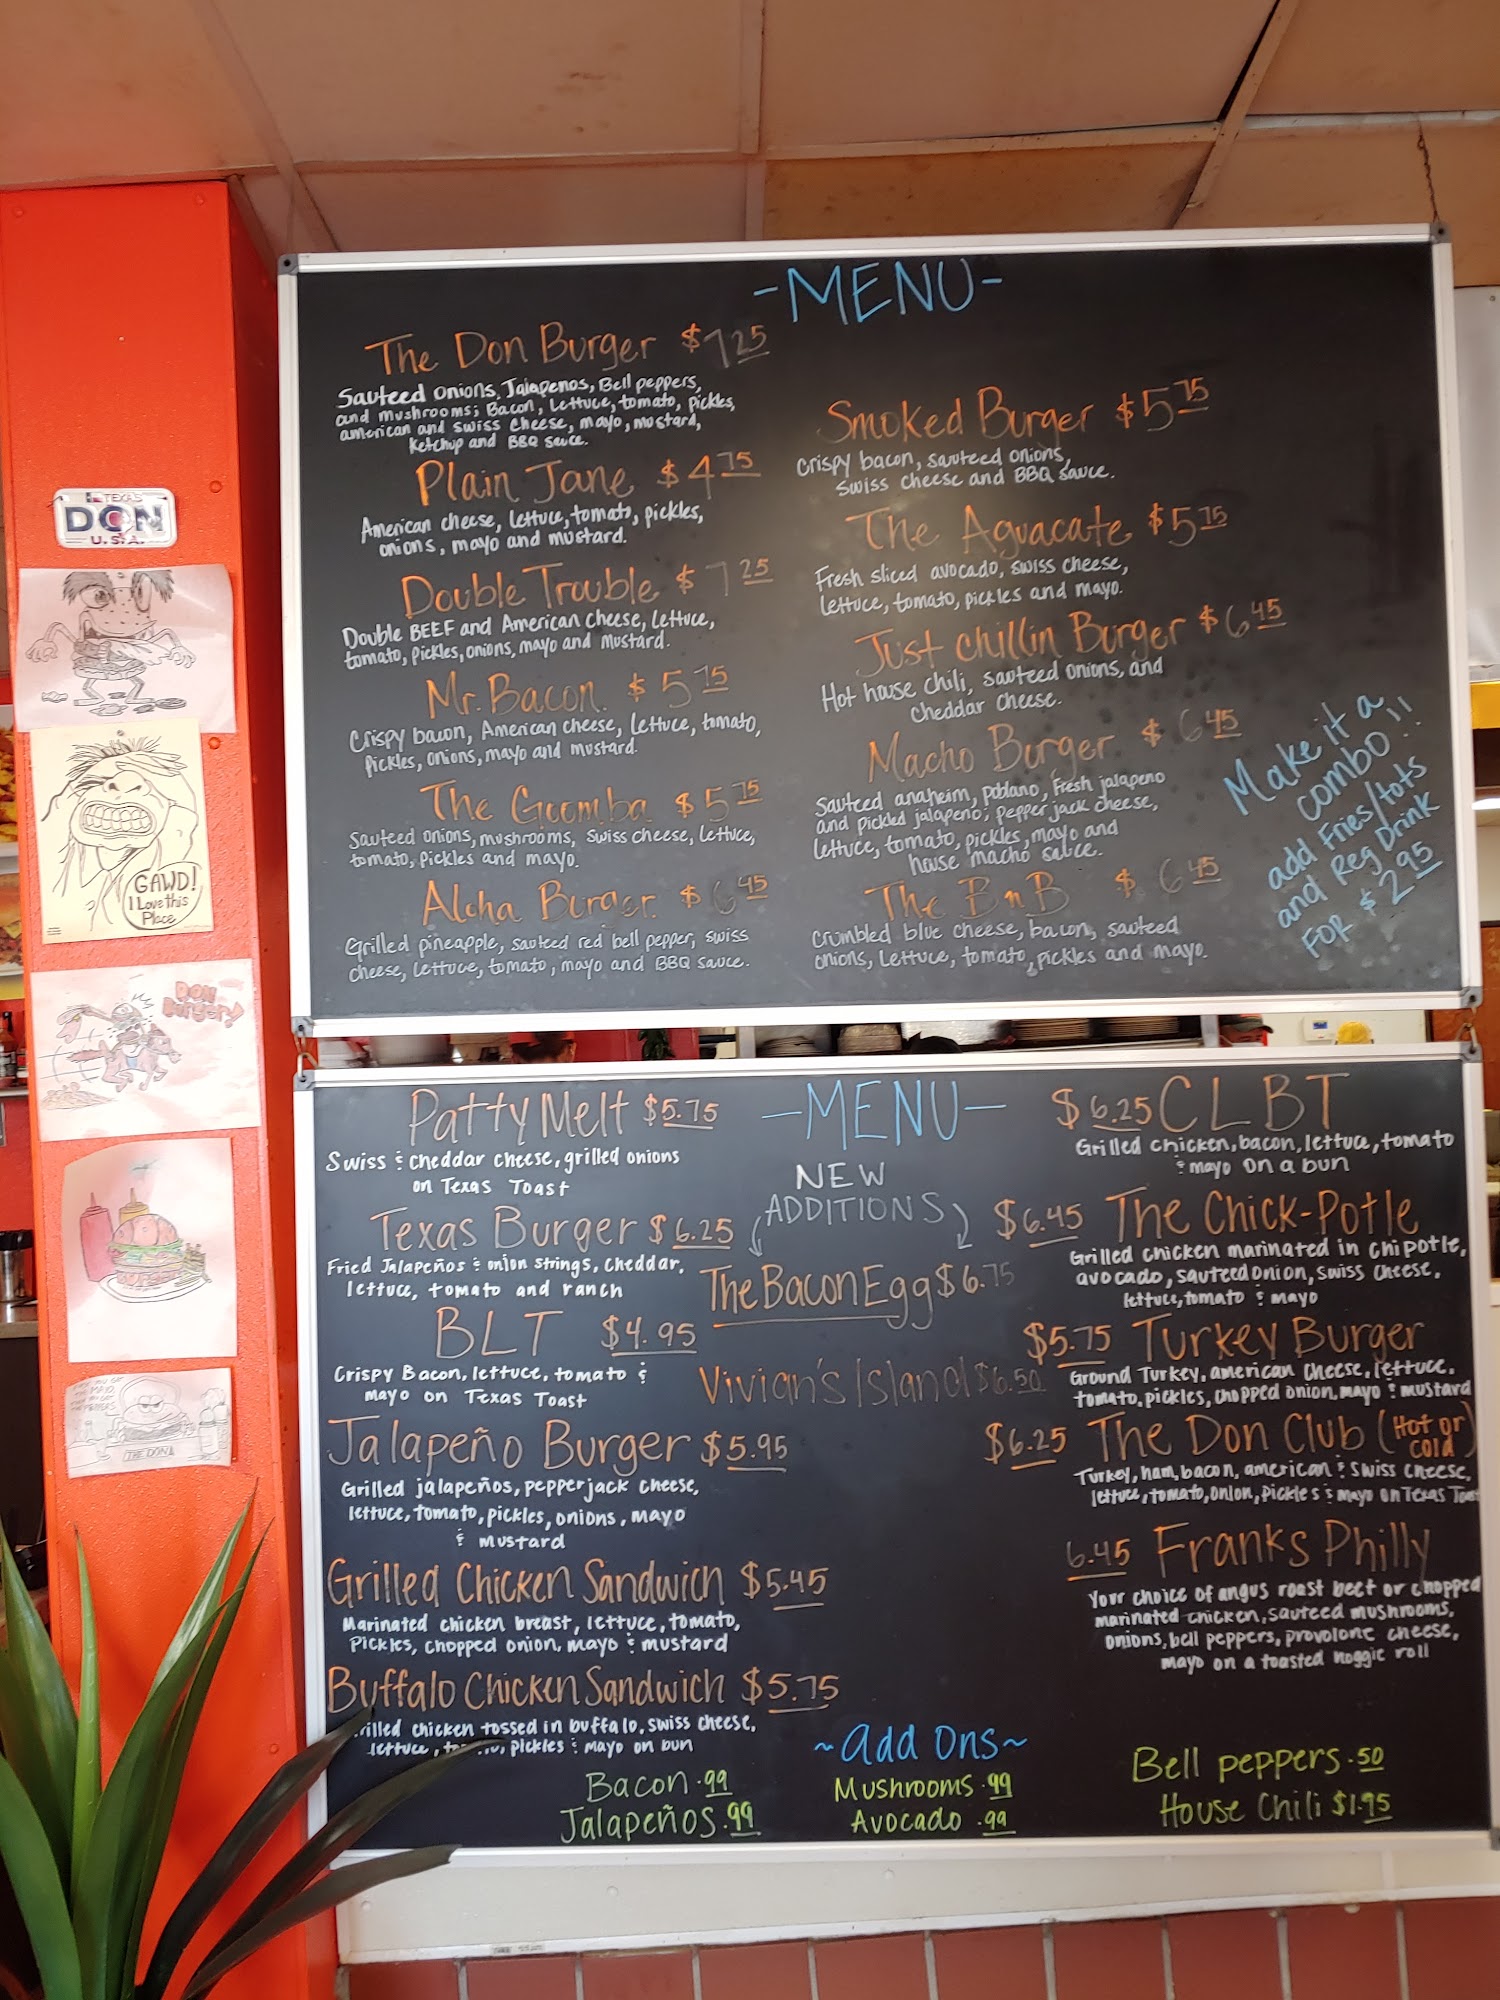 -MENU-
The Don Burger $7.25
Sauteed onions, Jalapenos, Bell peppers,
and mushrooms; Bacon, Lettuce, tomato, pickles,
american and swiss cheese, mayo, mustard,
ketchup and BBQ sauce.
Plain Jane $4.75
American cheese, lettuce, tomato, pickles,
onions, mayo and mustard.
Double Trouble $7.25
Double BEEF and American cheese, lettuce,
tomato, pickles, onions, mayo and Mustard.
Mr. Bacon. $5.75
Crispy bacon, American cheese, lettuce, tomato,
Pickles, onions, mayo and mustard.
The Goomba $5.75
Sauteed onions, mushrooms, swiss cheese, lettuce,
tomato, pickles and mayo.
Aloha Burger $6.45
Grilled pineapple, sauteed red bell pepper, swiss
cheese, lettuce, tomato, mayo and BBQ sauce.
Smoked Burger $5.75
Crispy bacon, sauteed onions,
Swiss cheese and BBQ sauce.
The Aguacate $5.75
Fresh sliced avocado, swiss cheese,
lettuce, tomato, pickles and mayo.
Just chillin Burger $6.45
Hot house chili, sauteed onions, and
cheddar cheese.
Macho Burger $6.45
Sauteed anaheim, poblano, fresh jalapeno
and pickled jalapeno; pepper jack cheese,
lettuce, tomato, pickles, mayo and
house macho sauce.
The BnB $6.45
Crumbled blue cheese, bacon, sauteed
onions, Lettuce, tomato, pickles and mayo.
Make it a
combo!!
add Fries/tots
and Reg Drink
FOR $2.95
-MENU-
NEW
ADDITIONS
The Bacon Egg $6.75
Vivian's Island $6.50
Patty Melt $5.75
Swiss & cheddar cheese, grilled onions
on Texas Toast
Texas Burger $6.25
Fried Jalapeños & onion strings, cheddar,
lettuce, tomato and ranch
BLT $4.95
Crispy Bacon, lettuce, tomato &
mayo on Texas Toast
Jalapeño Burger $5.95
Grilled jalapeños, pepperjack cheese,
lettuce, tomato, pickles, onions, mayo
& mustard
Grilled Chicken Sandwich $5.45
Marinated chicken breast, lettuce, tomato,
Pickles, chopped onion, mayo & mustard
Buffalo Chicken Sandwich $5.75
rilled chicken tossed in buffalo, swiss cheese,
lettuce, pickles & mayo on bun
$6.25 CLBT
Grilled chicken, bacon, lettuce, tomato
& mayo on a bun
$6.45 The Chick-Potle
Grilled chicken marinated in chipotle,
avocado, sauteed onion, swiss cheese,
lettuce, tomato & mayo
$5.75 Turkey Burger
Ground Turkey, american cheese, lettuce,
tomato, pickles, chopped onion, mayo & mustard
$6.25 The Don Club (Hot or
cold)
Turkey, ham, bacon, american & swiss cheese,
lettuce, tomato, onion, pickles & mayo on Texas Toast
6.45 Franks Philly
Your choice of angus roast beef or chopped
marinated chicken, sauteed mushrooms,
onions, bell peppers, provolone cheese,
mayo on a toasted hoggie roll
~Add Ons~
Bacon .99
Jalapeños .99
Mushrooms .99
Avocado .99
Bell peppers .50
House Chili $1.95
TEXAS
DON
U.S.A.
GAWD!
I Love this
Place
DON
Burger!
THE DON